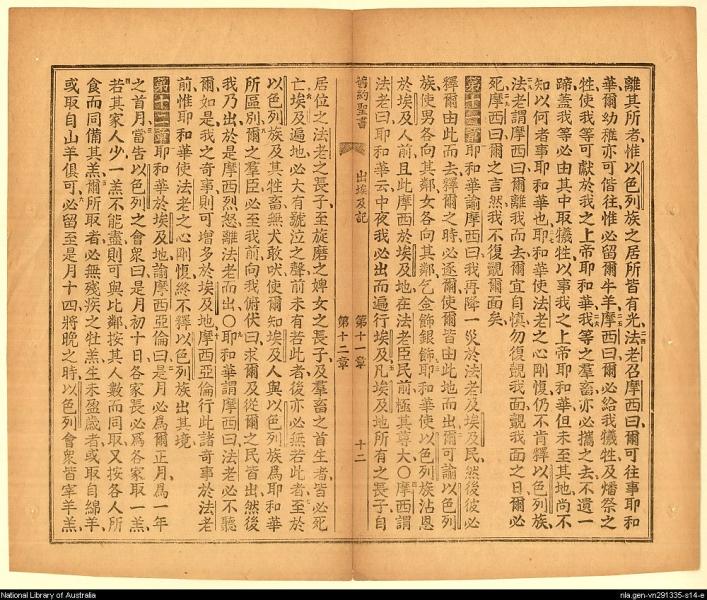 離其所者、惟以色列族之居所皆有光、法老召摩西曰爾可往事耶和
華爾幼稚亦可偕往惟必留爾牛羊摩西曰爾必給我犧牲及燔祭之
牲使我等可獻於我之上帝耶和華我等之羣畜亦必攜之去不遺一
蹄蓋我等必由其中取犧牲以事我之上帝耶和華但未至其地尚不
知以何者事耶和華也耶和華使法老之心剛愎仍不肯釋以色列族、
法老謂摩西曰爾離我而去爾宜自慎勿復覿我面覿我面之日爾必
死摩西曰爾之言然我不復覿爾面矣
第十一章耶和華諭摩西曰我再降一災於法老及埃及民然後彼必
釋爾由此而去釋爾之時必逐爾使爾皆由此地而出爾可諭以色列
族使男各向其鄰女各向其鄰乞金飾銀飾耶和華使以色列族沾恩
於埃及人前且此摩西於埃及地在法老臣民前極其尊大○摩西謂
法老曰耶和華云中夜我必出而遍行埃及凡埃及地所有之長子自
舊約聖書
出埃及記
第十一章
第十二章
十二
居位之法老之長子至旋磨之婢女之長子及羣畜之首生者皆必死
亡埃及遍地必大有號泣之聲前未有若此者後亦必無若此者至於
以色列族及其牲畜無犬敢吠使爾知埃及人與以色列族為耶和華
所區別爾之羣臣必至我前向我俯伏曰求爾及從爾之民皆出然後
我乃出於是摩西烈怒離法老而出○耶和華謂摩西曰法老必不聽
爾如是我之奇事則可增多於埃及地摩西亞倫行此諸奇事於法老
前惟耶和華使法老之心剛愎終不釋以色列族出其境
第十二章耶和華於埃及地諭摩西亞倫曰是月必爲爾正月爲一年
之首月當告以色列之會衆曰是月初十日各家長必爲各家取一羔、
若其家人少一羔不能盡則可與比鄰按其人數而同取又按各人所
食而同備其羔爾所取者必無殘疾之牡羔生未盈歲者或取自綿羊、
或取自山羊俱可必留至是月十四將晚之時以色列會衆皆宰羊羔、
National Library of Australia
nla.gen-vn291335-s14-e